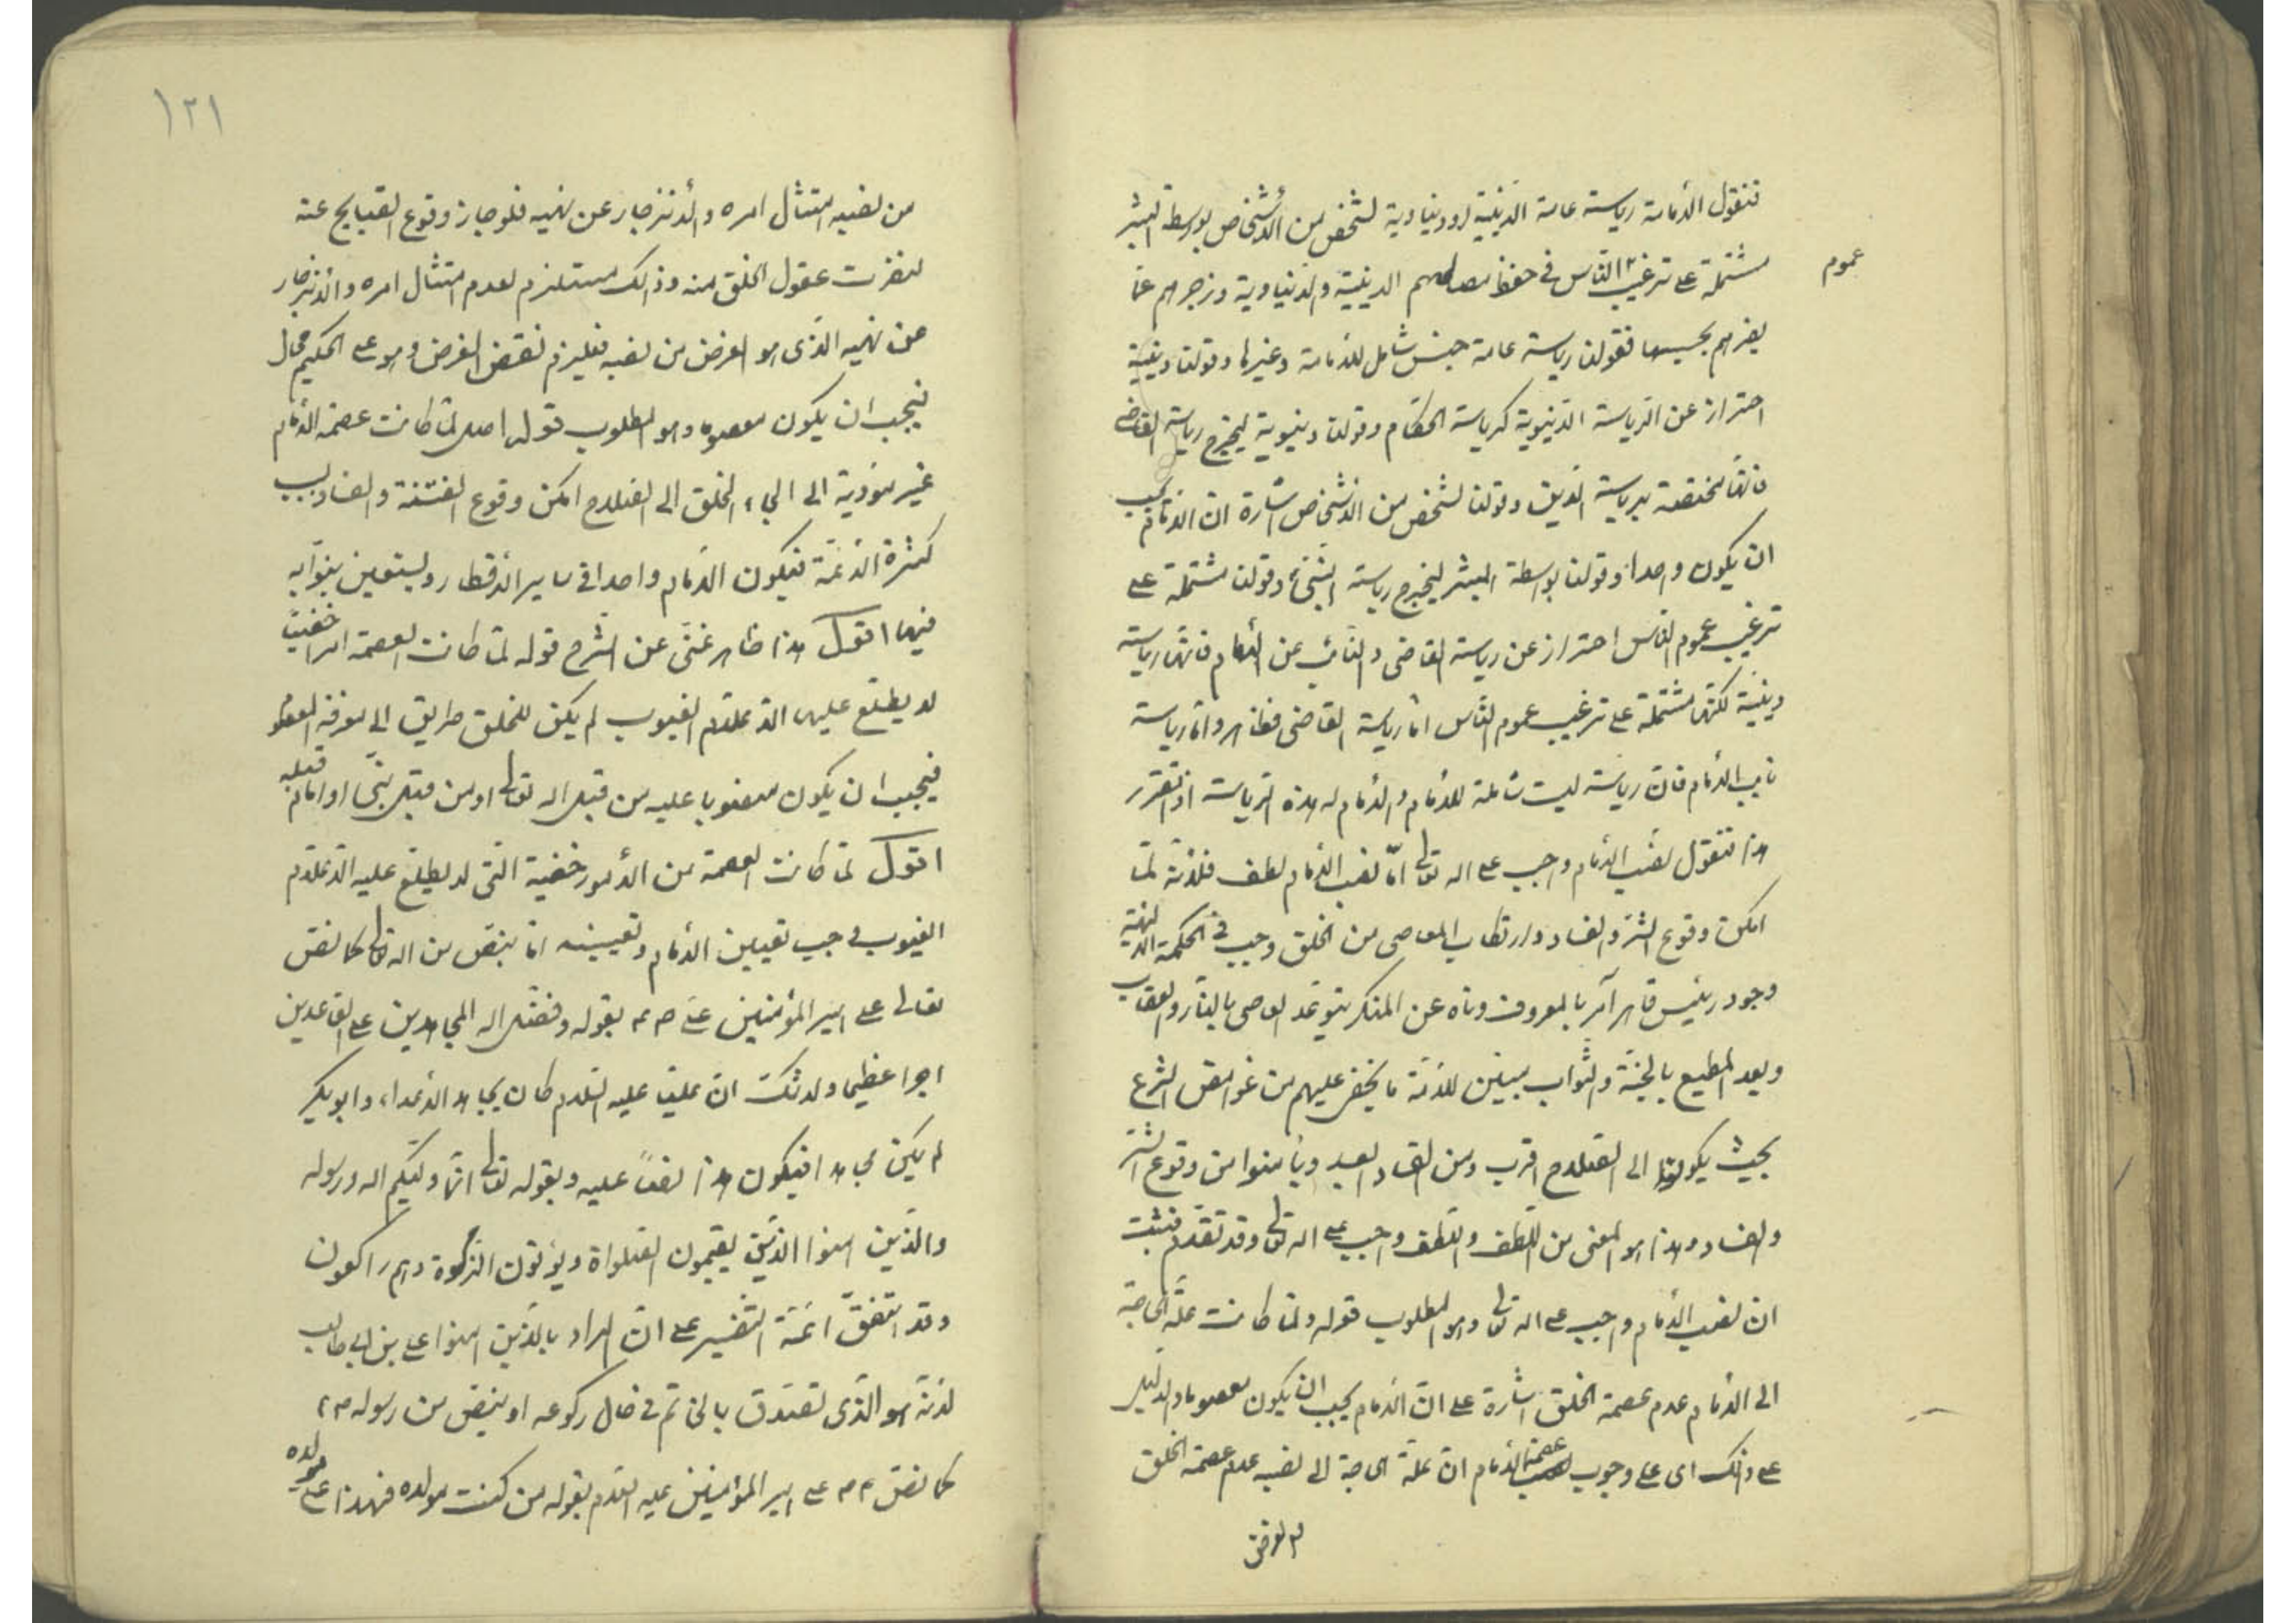 فنقول الأمامة رياسة عامة الدّينية لو دنياوية لشخص من الأشخاص بواسطة البشر
عموم
مشتملة على ترغيب النّاس في حفظ مصالحهم الدينية والدّنياوية وزجرهم عمّا
يضرهم بحسبها فقولنا رياسة عامة جنس شامل للأمامة وغيرها وقولنا دينية
احتراز عن الرّياسة الدّنيوية كرياسة الحكّام وقولنا دنيوية ليخرج رياسة القاضى
فانّها مختصّة برياسة الدّين وقولنا لشخص من الأشخاص اشارة ان الأمام يجب
ان يكون واحدا وقولنا بواسطة البشر ليخرج رياسة النّبيّ وقولنا مشتملة على
ترغيب عموم النّاس احتراز عن رياسة القاضى والنّائب عن الأمام فانّها رياسة
دينيّة لكنّها مشتملة على ترغيب عموم النّاس امّا رياسة القاضى فظاهر وامّا رياسة
نايب الأمام فانّ رياسة ليست شاملة للأمام والأمام له هذه الرّياسة اذ اتقرر
هذا فنقول نصب الأمام واجب على اله تعالى امّا نصب الأمام لطف فلأنّه لمّا
امكن وقوع الشرّ والفساد وارتكاب المعاصى من الخلق وجب في الحكمة الالهيّة
وجود رئيس قاهر آمر بالمعروف وناه عن المنكر يتوعّد العاصى بالنّار والعقاب
ويعد المطيع بالجنّة والثّواب مبيّن للأمّة ما يخفى عليهم من غوامض الشّرع
بحيث يكونوا الى الصّلاح اقرب ومن الفساد ابعد ويأمنوا من وقوع الشّرّ
والفساد وهذا هو المعنى من اللّطف واللّطف واجب على اله تعالى وقد تقدّم فثبت
ان نصب الأمام واجب على اله تعالى وهو المطلوب قوله ولمّا كانت علّة الحاجة
الى الأمام عدم عصمة الخلق اشارة على انّ الأمام يجب ان يكون معصوما والدليل
على ذلك اى على وجوب عصمة الأمام انّ علّة الحاجة الى نصبه عدم عصمة الخلق
والغرض
١٢١
من نصبه امتثال امره والأنزجار عن نهيه فلو جاز وقوع القبايح عنه
لنفرت عقول الخلق منه وذلك مستلزم لعدم امتثال امره والأنزجار
عن نهيه الّذى هو الغرض من نصبه فيلزم نقض الغرض وهو على الحكيم محال
فيجب ان يكون معصوما وهو المطلوب قوله اصل لمّا كانت عصمة الأمام
غير مؤدية الى الجاء الخلق الى الصّلاح امكن وقوع الفتنة والفساد بسبب
كثرة الأئمّة فيكون الأمام واحدا في ساير الأقطار ويستعين بنوّابه
فيها اقول هذا ظاهر غنىّ عن الشّرح قوله لمّا كانت العصمة امرا خفيّا
لا يطّلع عليها الّا علّام الغيوب لم يكن للخلق طريق الى معرفة المعصوم
فيجب ان يكون منصوبا عليه من قبل اله تعالى او من قبل نبىّ او امام قبله
اقول لمّا كانت العصمة من الأمور خفية الّتى لا يطّلع عليه الّا علّام
الغيوب وجب تعيين الأمام وتعيينه امّا بنصّ من اله تعالى كما نصّ
تعالى على امير المؤمنين علىّ ٣ م بقوله وفضّل اله المجاهدين على القاعدين
اجرا عظيما ولا شكّ انّ عليّا عليه السّلام كان يجاهد الأعداء وابو بكر
لم يكن مجاهدا فيكون هذا نصّا عليه وبقوله تعالى انّما وليّكم اله ورسوله
والّذين امنوا الّذين يقيمون الصّلواة ويؤتون الزّكوة وهم راكعون
وقد اتّفق ائمّة التّفسير على انّ المراد بالّذين امنوا على بن ابي طالب
لأنّه هو الّذى تصدّق بالخاتم في حال ركوعه او بنصّ من رسوله ص م
كما نصّ ص م على امير المؤمنين عليه السّلام بقوله من كنت مولاه فهذا على مولاه